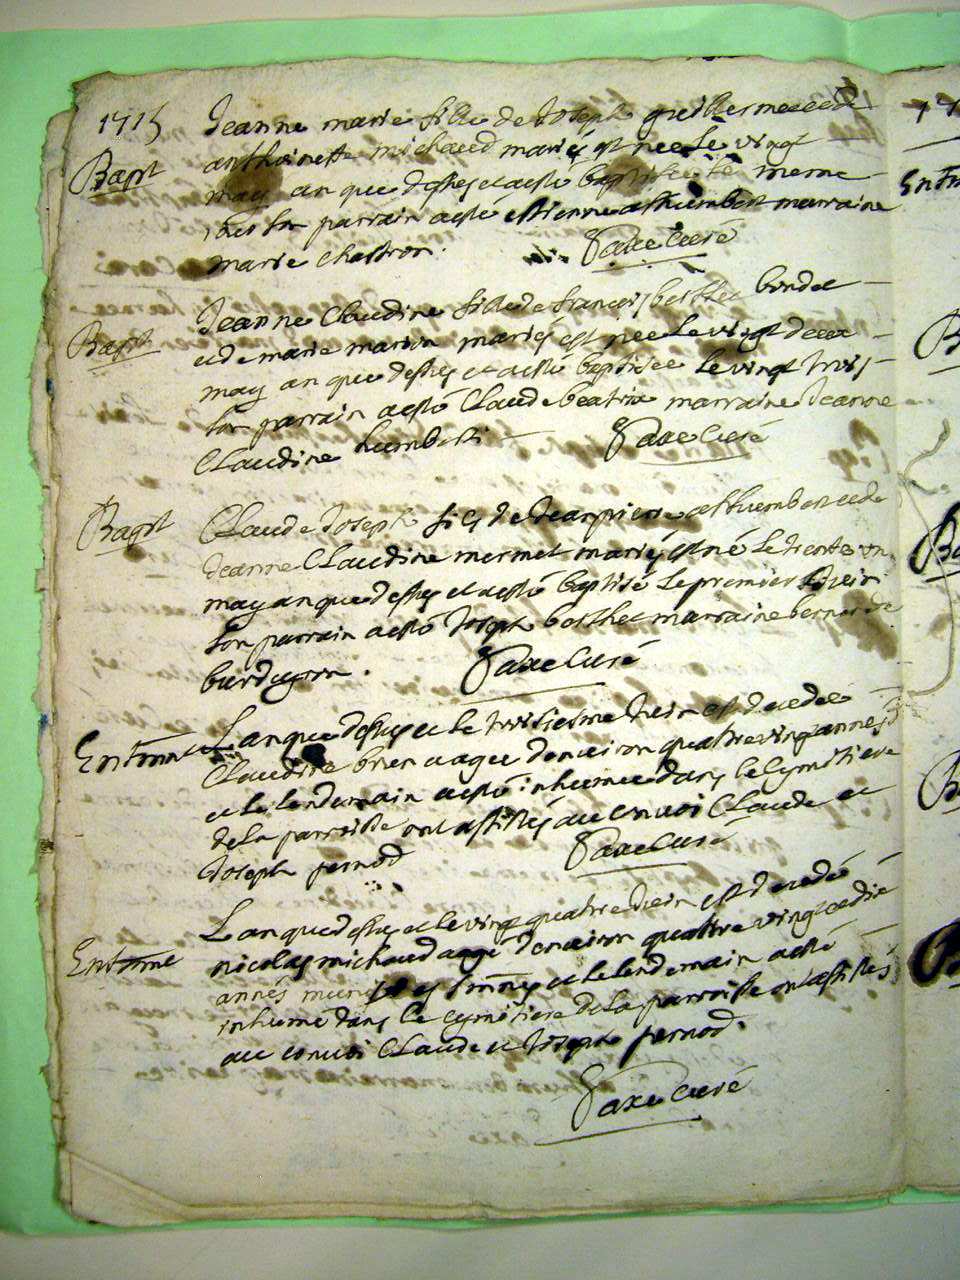 1715
Bapt
Jeanne marie fille de Joseph guillermee et de
anthoinette michaud mariés est née le vingt
may an que dessus et a esté baptisée le meme
jour son parrain a esté estienne affhumbert marraine
marie chastron. Paxe Curé
Bapt
Jeanne Claudine fille de françois berthet bondet
et de marie marion mariés est née le vingt deux
may an que dessus et a esté baptisée le vingt trois
son parrain a esté Claude beatrix marraine Jeanne
Claudine humbert Paxe Curé
Bapt
Claude Joseph fils de Jean pierre affhumbert et de
Jeanne Claudine mermet mariés est né le trente un
may an que dessus et a esté baptisé le premier Juin
son parrain a esté Joseph berthet marraine bernarde
burdeyron. Paxe Curé
Enterremt
L an que dessus et le troisiesme Juin est decedée
Claudine brien aagée d'environ quattre vingt années
et le lendemain a esté inhumée dans le Cymetiere
de la parroisse ont assistés au convoi Claude et
Joseph pernod Paxe Curé
Enterreme
L an que dessus et le vingt quatre Juin est decedé
nicolas michaud aagé d'environ quattre vingt et dix
années muni des Smens et le lendemain a esté
inhumé dans le cymetiere de la parroisse ont assistés
au convoi Claude et Joseph pernod.
Paxe Curé